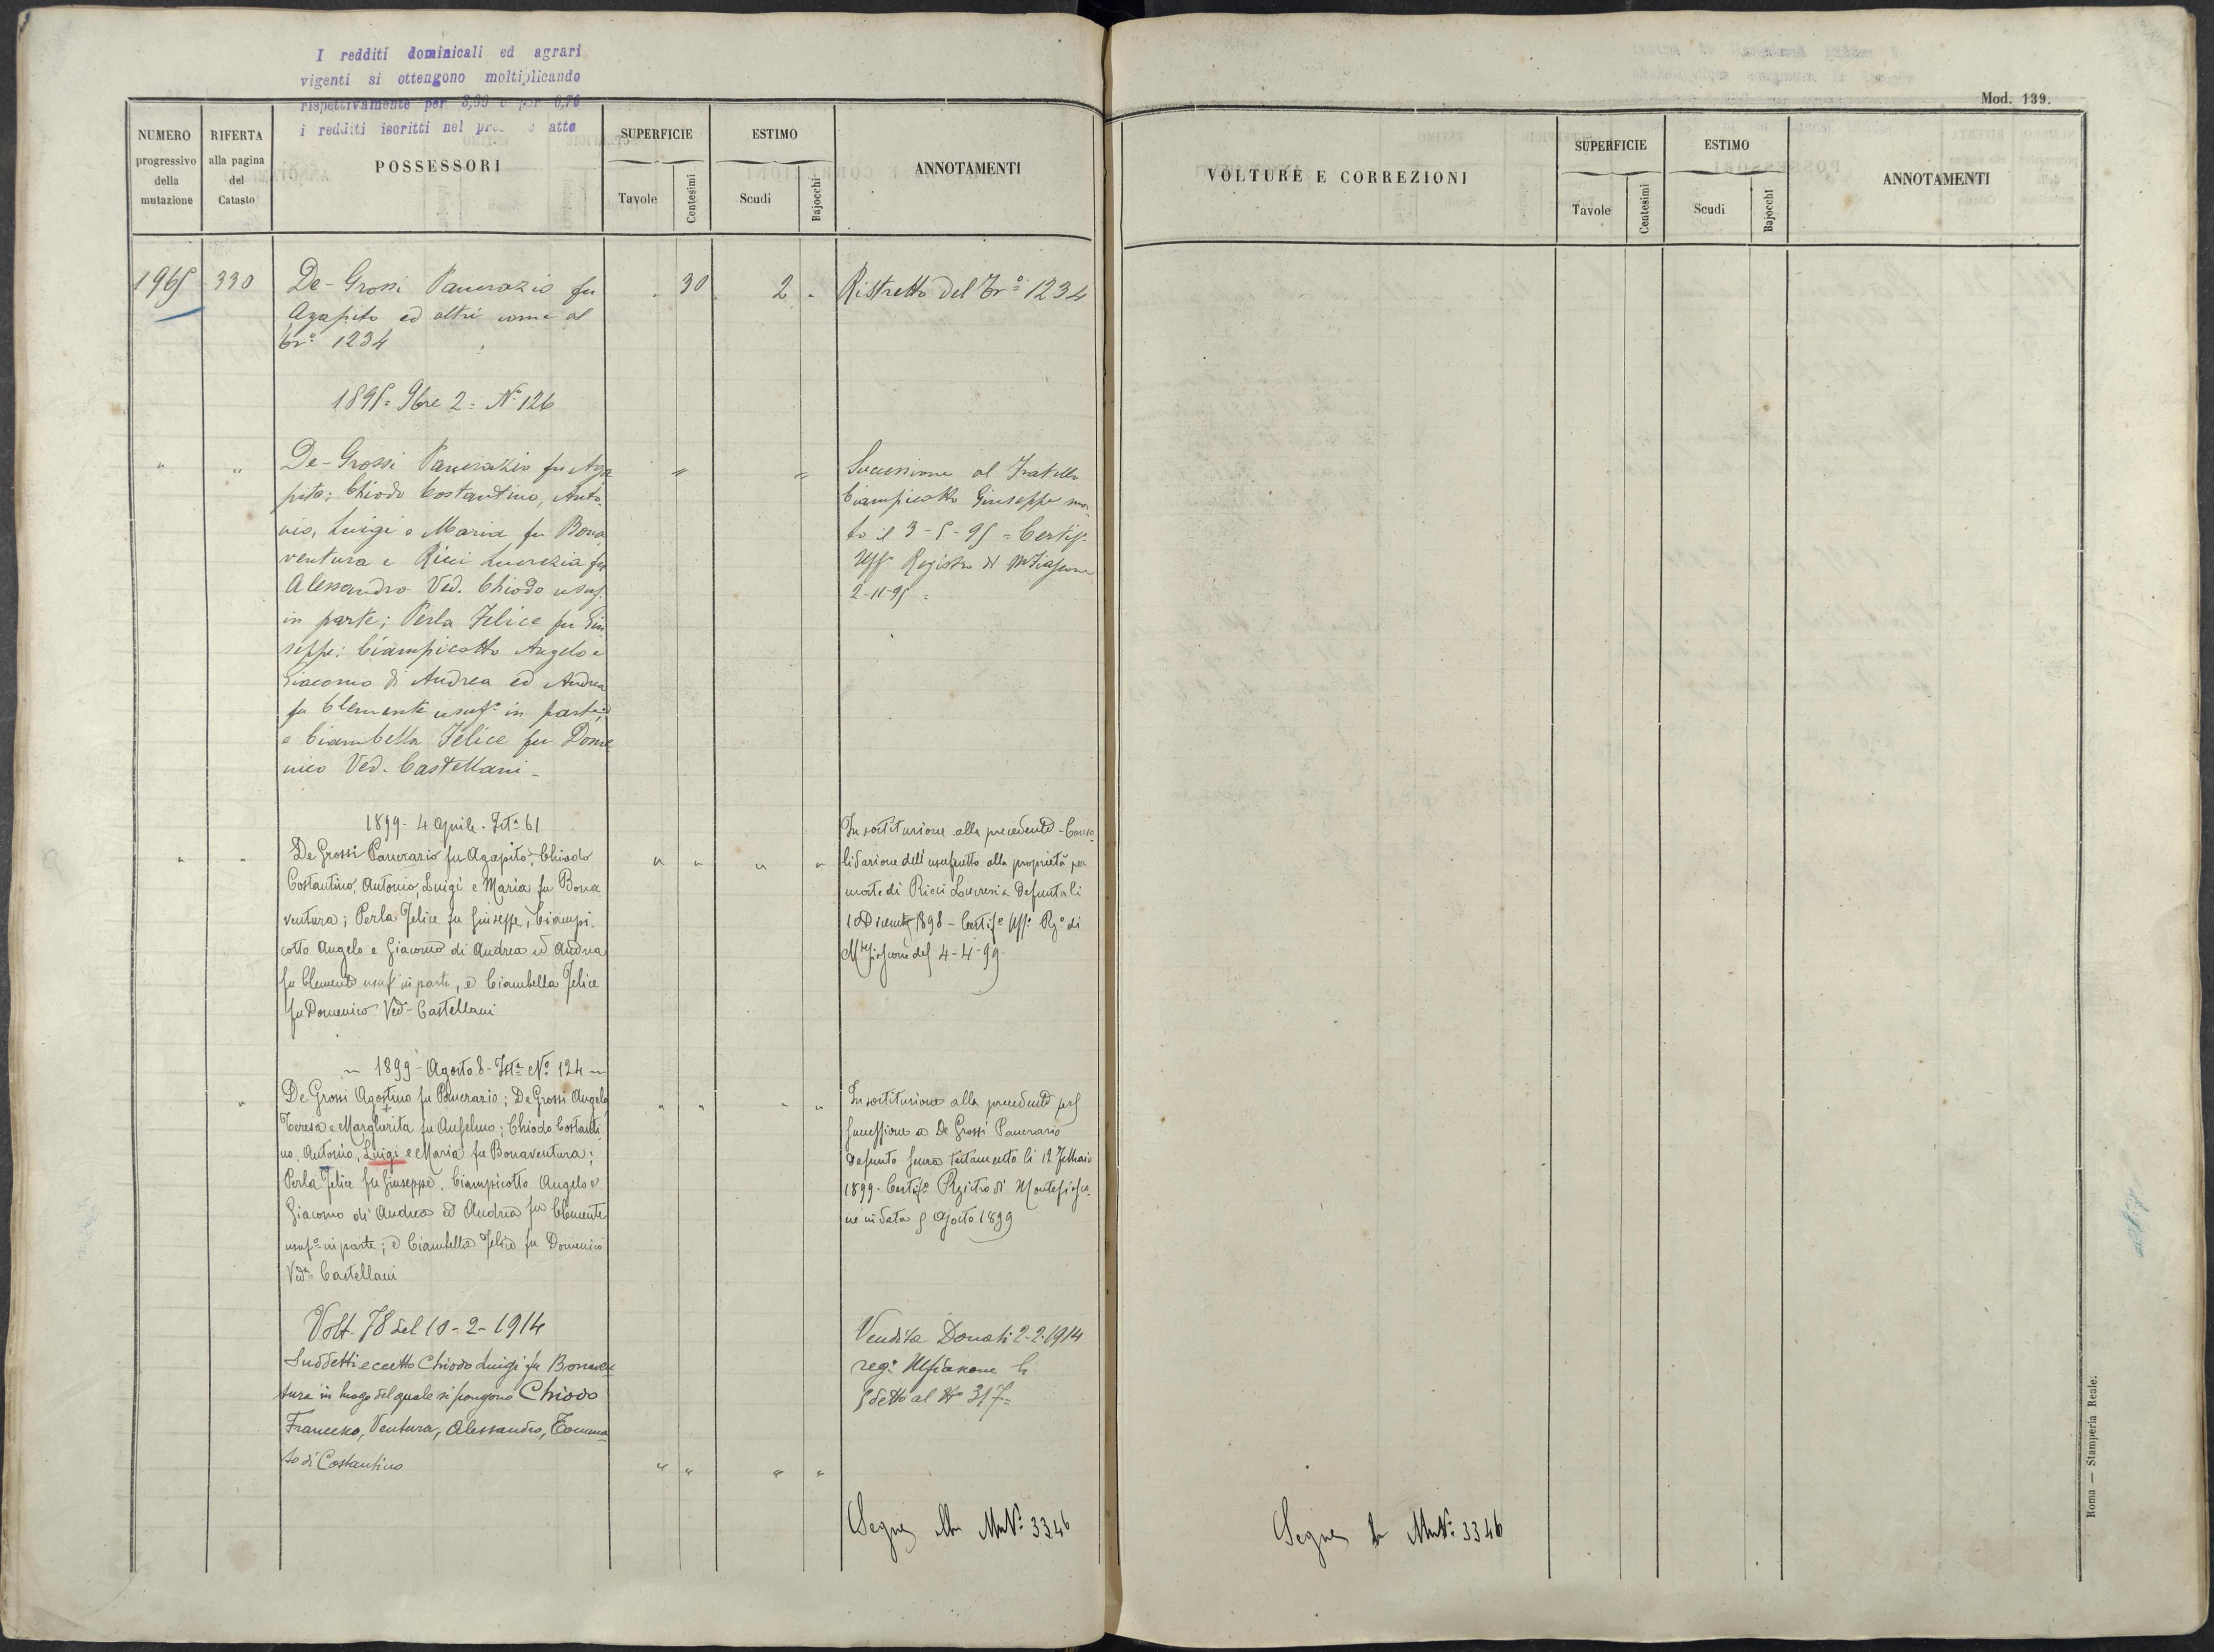 I redditi dominicali ed agrari
vigenti si ottengono moltiplicando
rispettivamente per e per
i redditi iscritti nel atto
NUMERO
progressivo
della
mutazione
RIFERTA
alla pagina
del
Catasto
POSSESSORI
SUPERFICIE
Tavole
Centesimi
ESTIMO
Scudi
Bajocchi
ANNOTAMENTI
1965 330 De-Grossi Pancrazio fu . 30 2 . Ristretto del Nrº 1234
Agapito ed altri come al
Nrº 1234
1895 = 9bre 2 = Nº 126
" " De-Grossi Pancrazio fu Aga " "
pito; Chiodo Costantino, Anto
nio, Luigi e Maria fu Bona
ventura e Ricci Lucrezia fu
Alessandro Ved. Chiodo usuf.
in parte; Perla Felice fu Giu
seppe; Ciampicotto Angelo e
Giacomo di Andrea ed Andrea
fu Clemente usufº in parte;
e Ciambella Felice fu Dome
nico Ved. Castellani -
Successione al Fratello
Ciampicotto Giuseppe mor
to il 3-5-95 = Certifº
Uffº Registro di MFiascone
2-11-95 =
1899 - 4 Aprile - Istª 61
" " De Grossi Pancrazio fu Agapito; Chiodo " " " "
Costantino, Antonio, Luigi e Maria fu Bona
ventura; Perla Felice fu Giuseppe, Ciampi
cotto Angelo e Giacomo di Andrea ed Andrea
fu Clemente usuf in parte, e Ciambella Felice
fu Domenico Vedª Castellani
In sostituzione alla precedente - Conso
lidazione dell'usufrutto alla proprietà per
morte di Ricci Lucrezia defunta li
10 Dicembre 1898 - Certifº Uffº Rgº di
Mtefiascone del 4-4-99
~ 1899 - Agosto 8 - Istª Nº 124 ~
" De Grossi Agostino fu Pancrazio; De Grossi Angelo " " " "
Teresa e Margherita fu Anselmo; Chiodo Costanti
no, Antonio, Luigi e Maria fu Bonaventura;
Perla Felice fu Giuseppe, Ciampicotto Angelo e
Giacomo di Andrea ed Andrea fu Clemente
usufº in parte; e Ciambella Felice fu Domenico
Vedª Castellani
In sostituzione alla precedente per
successione a De Grossi Pancrazio
defunto senza testamento li 12 Febbraio
1899 - Certifº Registro di Montefiasco
ne in data 5 Agosto 1899
Volt. 78 del 10-2-1914
Suddetti eccetto Chiodo Luigi fu Bonaven
tura in luogo del quale si pongono Chiodo
Francesco, Ventura, Alessandro, Tomma
so di Costantino " " " "
Vendita Donati 2-2-1914
regº Mfiascone li
5 detto al Nº 317 =
Segue Nº 3346
Mod. 139.
VOLTURE E CORREZIONI
SUPERFICIE
Tavole
Centesimi
ESTIMO
Scudi
Bajocchi
ANNOTAMENTI
Segue Nº 3346
Roma — Stamperia Reale.